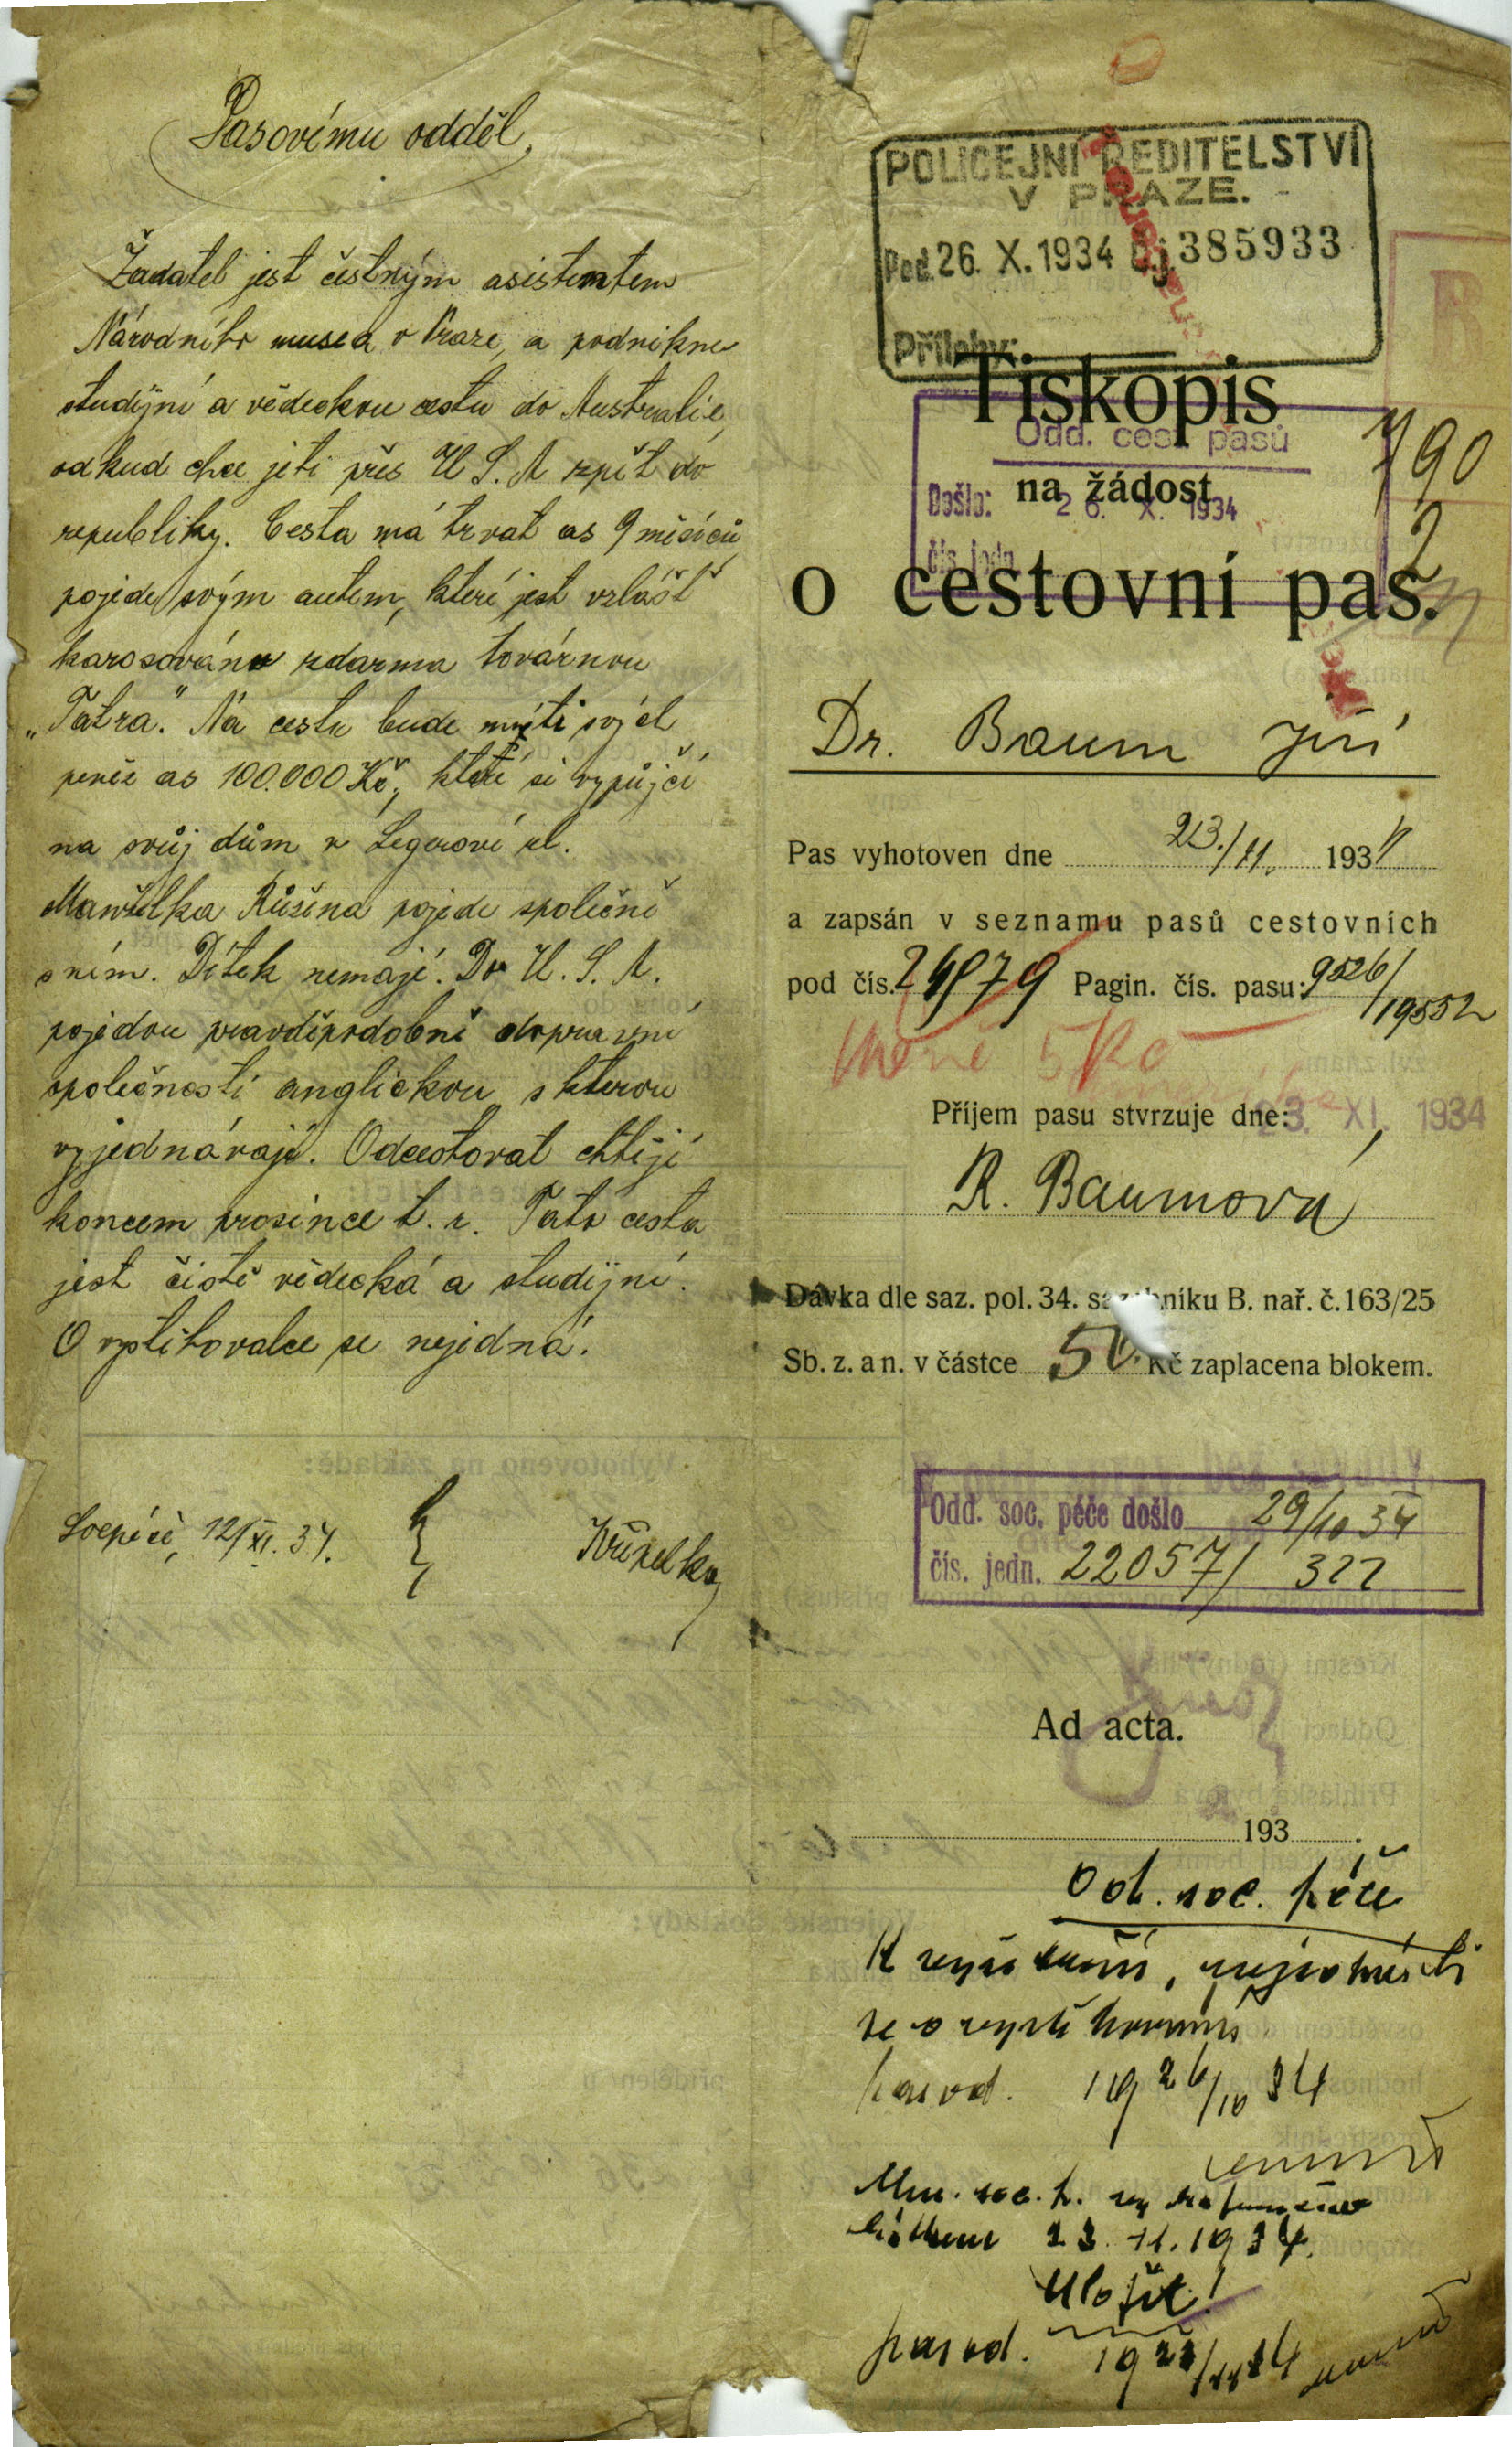 Pasovému odděl.
Žadatel jest čestným asistentem
Národního musea v Praze, a podnikne
studijní a vědeckou cestu do Australie,
odkud chce jeti přes U.S.A zpět do
republiky. Cesta má trvat as 9 měsíců
pojede svým autem, které jest vzlášť
karosováno zdarma továrnou
„Tatra." Na cestu bude míti svých
peněz as 100.000 Kč, které si vypůjčí
na svůj dům v Legerově ul.
Manželka Růžena pojede společně
s ním. Dítek nemají. Do U.S.A.
pojedou pravděpodobně dopravní
společností anglickou s kterou
vyjednávají. Odcestovat chtějí
koncem prosince t.r. Tato cesta
jest čistě vědecká a studijní.
O vystěhovalce se nejedná.
12/XI. 34.
POLICEJNÍ ŘEDITELSTVÍ
V PRAZE.
Pod. 26. X. 1934 Čj. 385933
Přílohy:
Tiskopis
Odd. cest. pasů
na žádost
Došlo: 26. X. 1934
čís. jedn.
o cestovní pas.
190
2
Dr. Baum Jiří
Pas vyhotoven dne 23./11. 1934
a zapsán v seznamu pasů cestovních
pod čís. 24879 Pagin. čís. pasu: 9526/
19552
5 Kč
Příjem pasu stvrzuje dne: 23. XI. 1934
R. Baumová
Dávka dle saz. pol. 34. sazebníku B. nař. č. 163/25
Sb. z. a n. v částce 50.- Kč zaplacena blokem.
Odd. soc. péče došlo 29/10 34
čís. jedn. 22057/ 322
Ad acta.
193 .
Od. soc. péče
K vyjádření, nejedná-li
se o vystěhování
26/10 34
Min. soc. p.
23. 11. 1934.
Uložit!
Vyhotoveno na základě:
Křestní (rodný) list
Oddací list
Vojenské doklady:
přidělen u